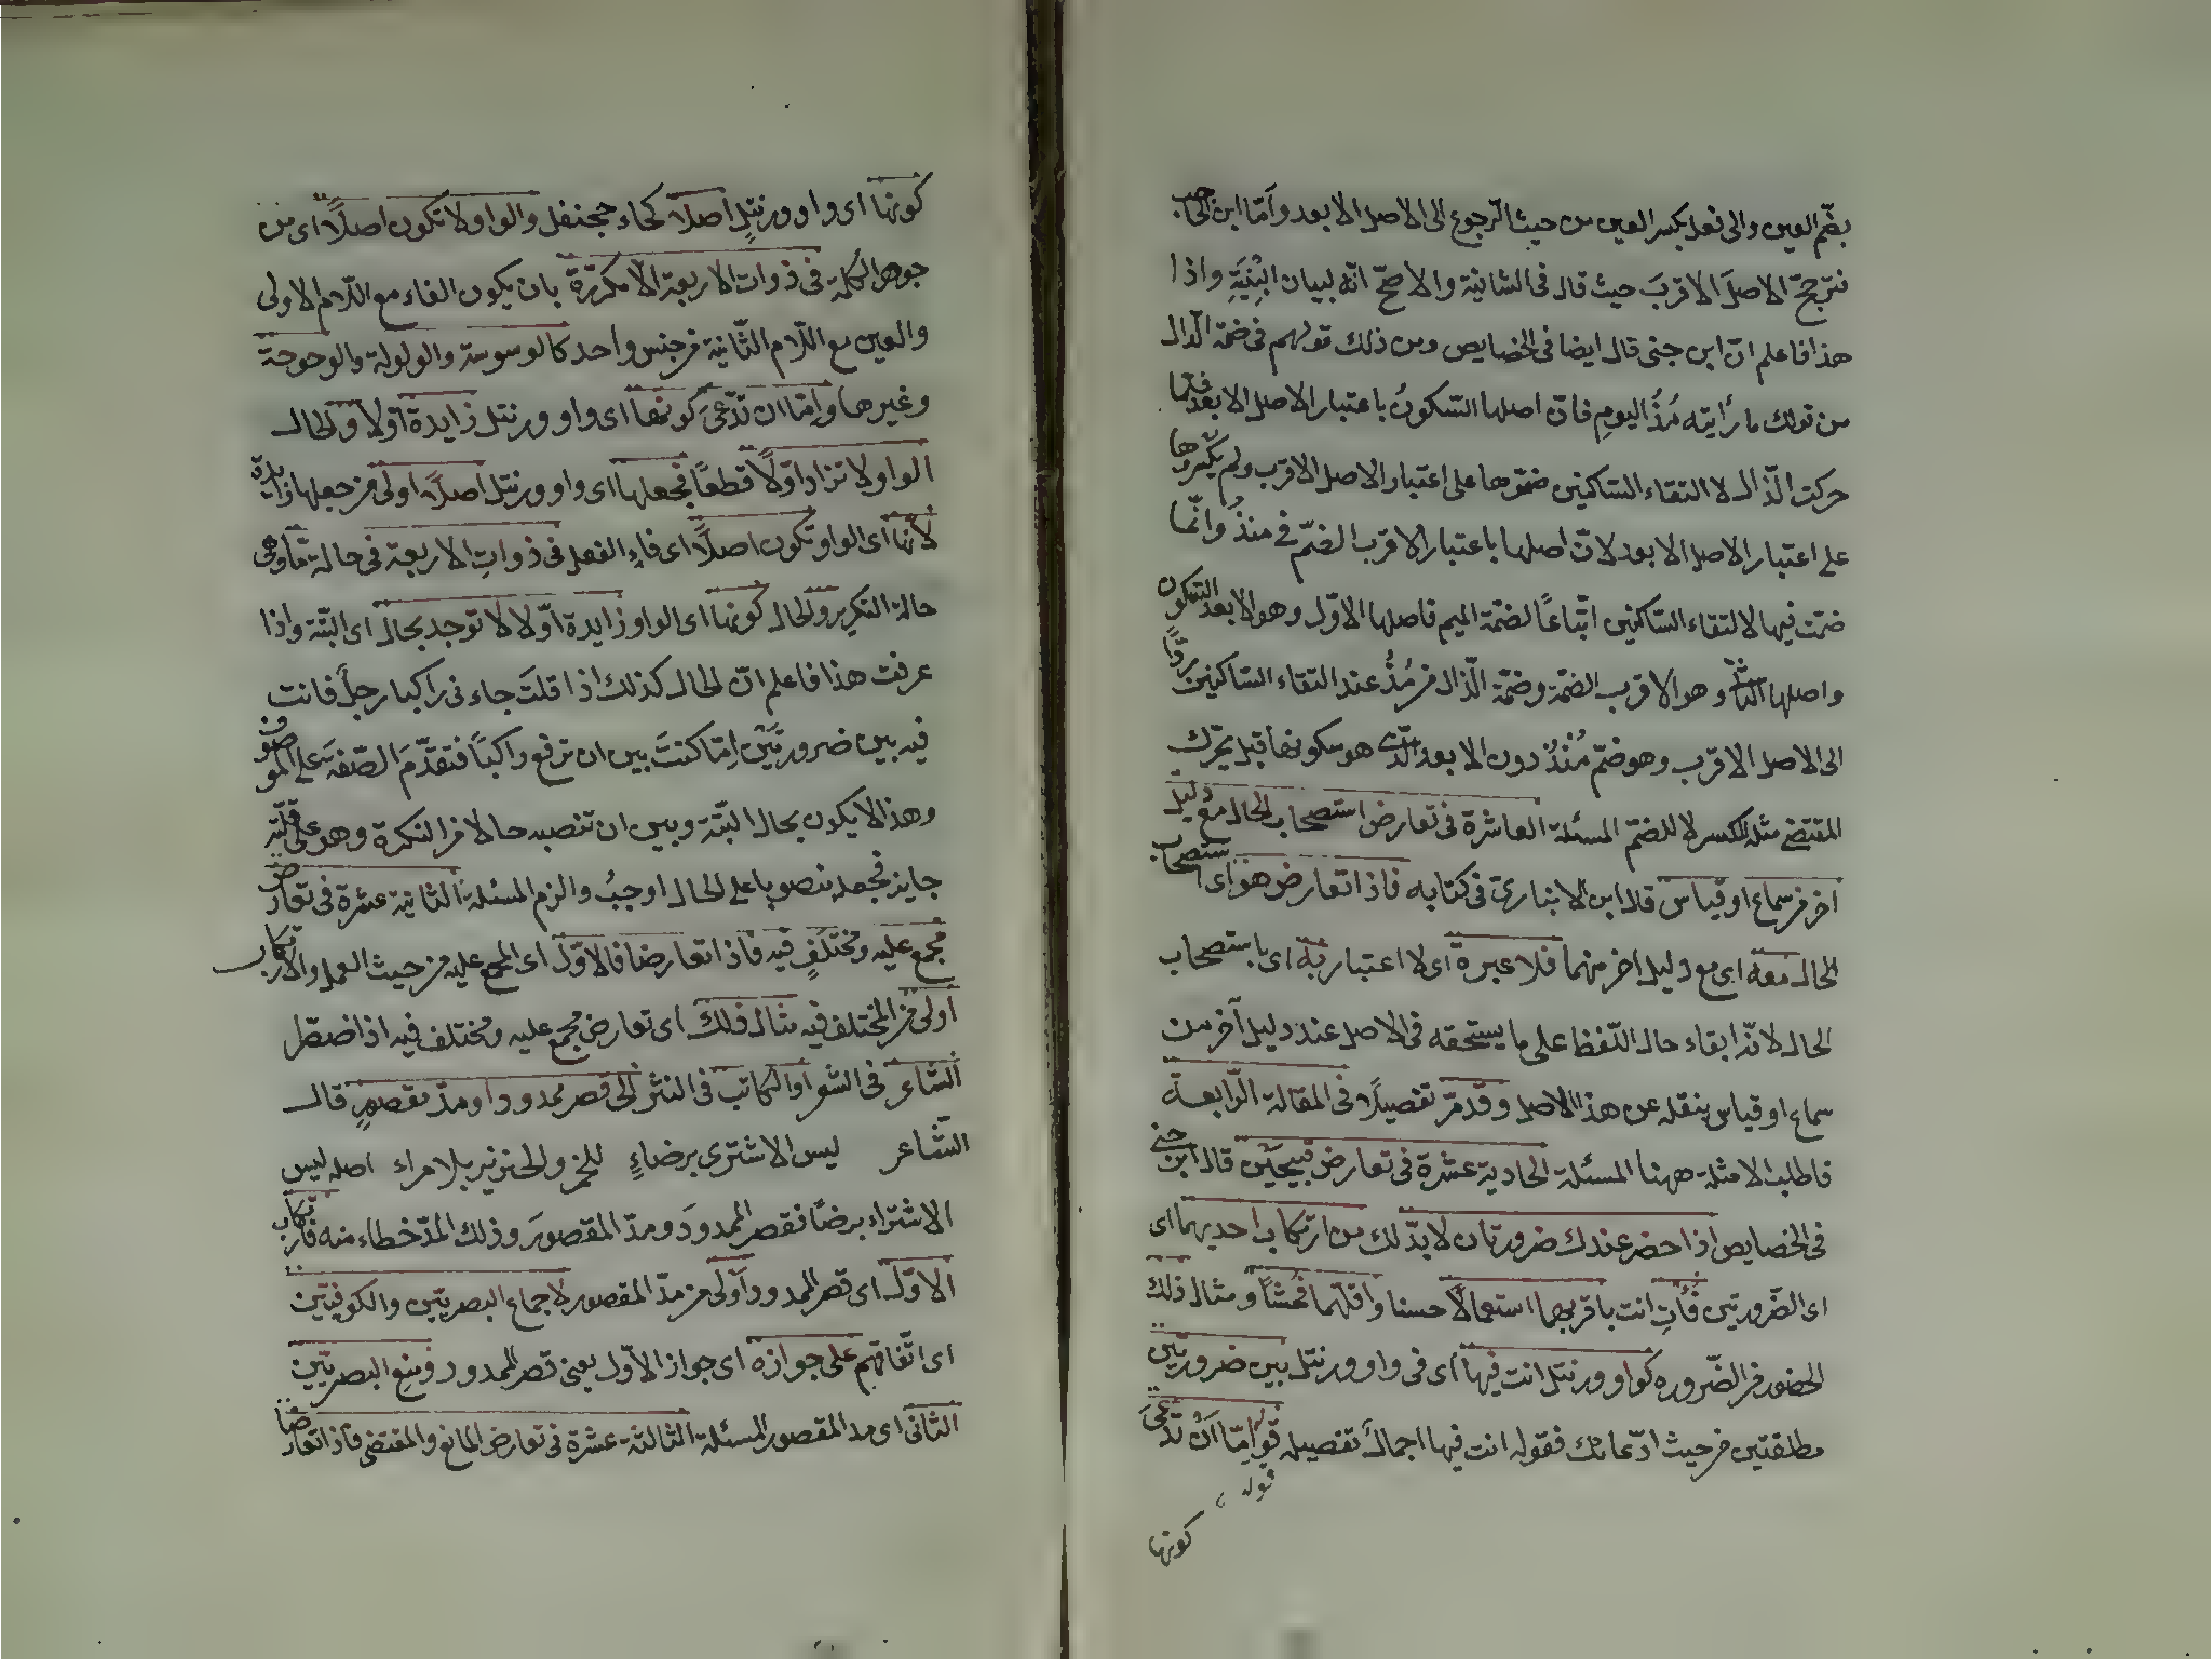 بضم العين والى فعل بكسر العين من حيث الرجوع الى الاصل الابعد وأمّا ابن الحاجب
فترجح الاصلَ الاقربَ حيث قال فى الثانية والاصحّ انّه لبيان ابْنِيَةِ واذا
هذا فاعلم انّ ابن جنى قال ايضا فى الخصايص ومن ذلك قولهم فى ضمّة الذال
من قولك ما رأيته مُذُ اليومِ فانّ اصلها السّكونُ باعتبار الاصل الابعد فلمّا
حركت الّذال لالتقاء السّاكنين ضمّوها على اعتبار الاصل الاقرب ولم يكسروها
على اعتبار الاصل الابعد لانّ اصلها باعتبار الاقرب الضمّ فى منذُ وانّما
ضمّت فيها لالتقاء السّاكنين اتّباعًا لضمّة الميم فاصلها الاوّل وهو الابعد السّكون
واصلها الثانى وهو الاقرب الضمّة وضمّة الّذال فى مُذُ عند التقاء السّاكنين ردًّا
الى الاصل الاقرب وهو ضمّ مُنْذُ دون الابعد الّذى هو سكونها قبل تحرّك
المقتضى مثله للكسر لا للضمّ المسئلة العاشرة فى تعارض استصحاب الحال مع دليل
اخر من سماع او قياس قال ابن الانبارى فى كتابه فاذا تعارض هو اى استصحاب
الحال معه اى مع دليل اخر منهما فلا عبرة اى لا اعتبار به اى باستصحاب
الحال لانّه ابقاء حال اللّفظ على ما يستحقه فى الاصل عند دليل آخر من
سماع او قياس ينقله عن هذا الاصل وقد مرّ تفصيلًا فى المقالة الرّابعة
فاطلب الامثلة ههنا المسئلة الحادية عشرة فى تعارض قبيحين قال ابن جنى
فى الخصايص اذا حضر عندك ضرورتان لا بدّ لك من ارتكاب احديهما اى
اى الضّرورتين فَأْتِ انت باقربهما استعمالًا حسنا واقلّهما فُحْشًا ومثال ذلك
الحضور من الضّروره كواو ورنتل انت فيها اى فى واو ورنتل بين ضرورتين
مطلقتين من حيث ادّعائك فقوله انت فيها اجمالٌ تفصيله قوله إمّا أنْ تدّعىَ
كونها
كونها اى واو ورنتلٍ اصلًا كحاء جحنفل والواو لا تكون اصلًا اى من
جوهر الكلمة فى ذوات الاربعة الّا مكررّة بان يكون الفاء مع اللّام الاولى
والعين مع اللّام الثّانية من جنس واحد كالوسوسة والولولة والوحوحة
وغيرها وإمّا ان تدّعىَ كونها اى واو ورنتل زايدة اولًا والحال
الواو لا تزاد اوّلًا قطعًا فجعلها اى واو ورنتل اصلًا اولى من جعلها زايدة
لانّها اى الواو تكون اصلًا اى فاءِ الفعل فى ذواتِ الاربعة فى حالة مّا وهى
حالة التكرير والحال كونها اى الواو زايدة اوّلا لا توجد بحال اى البتّة واذا
عرفت هذا فاعلم انّ الحال كذلك اذا قلتَ جاءنى راكبا رجلٌ فانت
فيه بين ضرورتَيْن إمّا كنتَ بين ان ترفع راكبًا فتقدّمَ الصّفة على الموصوف
وهذا لا يكون بحال البتّة وبين ان تنصبه حالا من النكرة وهو على قلّته
جايز فجعله منصوبا على الحال اوجبُ والزم المسئلة الثانية عشرة فى تعارض
مجمع عليه ومختلَفٍ فيه فاذا تعارضا فالاوّل اى المجمع عليه من حيث العمل والارتكاب
اولى من المختلف فيه مثال ذلك اى تعارض مجمع عليه ومختلف فيه اذا اضطّر
الشاعر فى الشعر او الكاتب فى النثر الى قصر ممدود او مدّ مقصورٍ قال
الشّاعر ليس الاشترى برضاءٍ للخمر والخنزير بلا مراء اصله ليس
الاشتراء برضًا فقصر الممدودَ ومدّ المقصورَ وذلك المدّ خطاء منه فارتكاب
الاوّل اى قصر الممدود أولى من مدّ المقصور لاجماع البصريّين والكوفيّين
اى اتّفاقهم على جوازه اى جواز الأول يعنى قصر الممدود ومنعِ البصريّين
الثانى اى مد المقصور المسئلة الثالثة عشرة فى تعارض المانع والمقتضى فاذا تعارضا